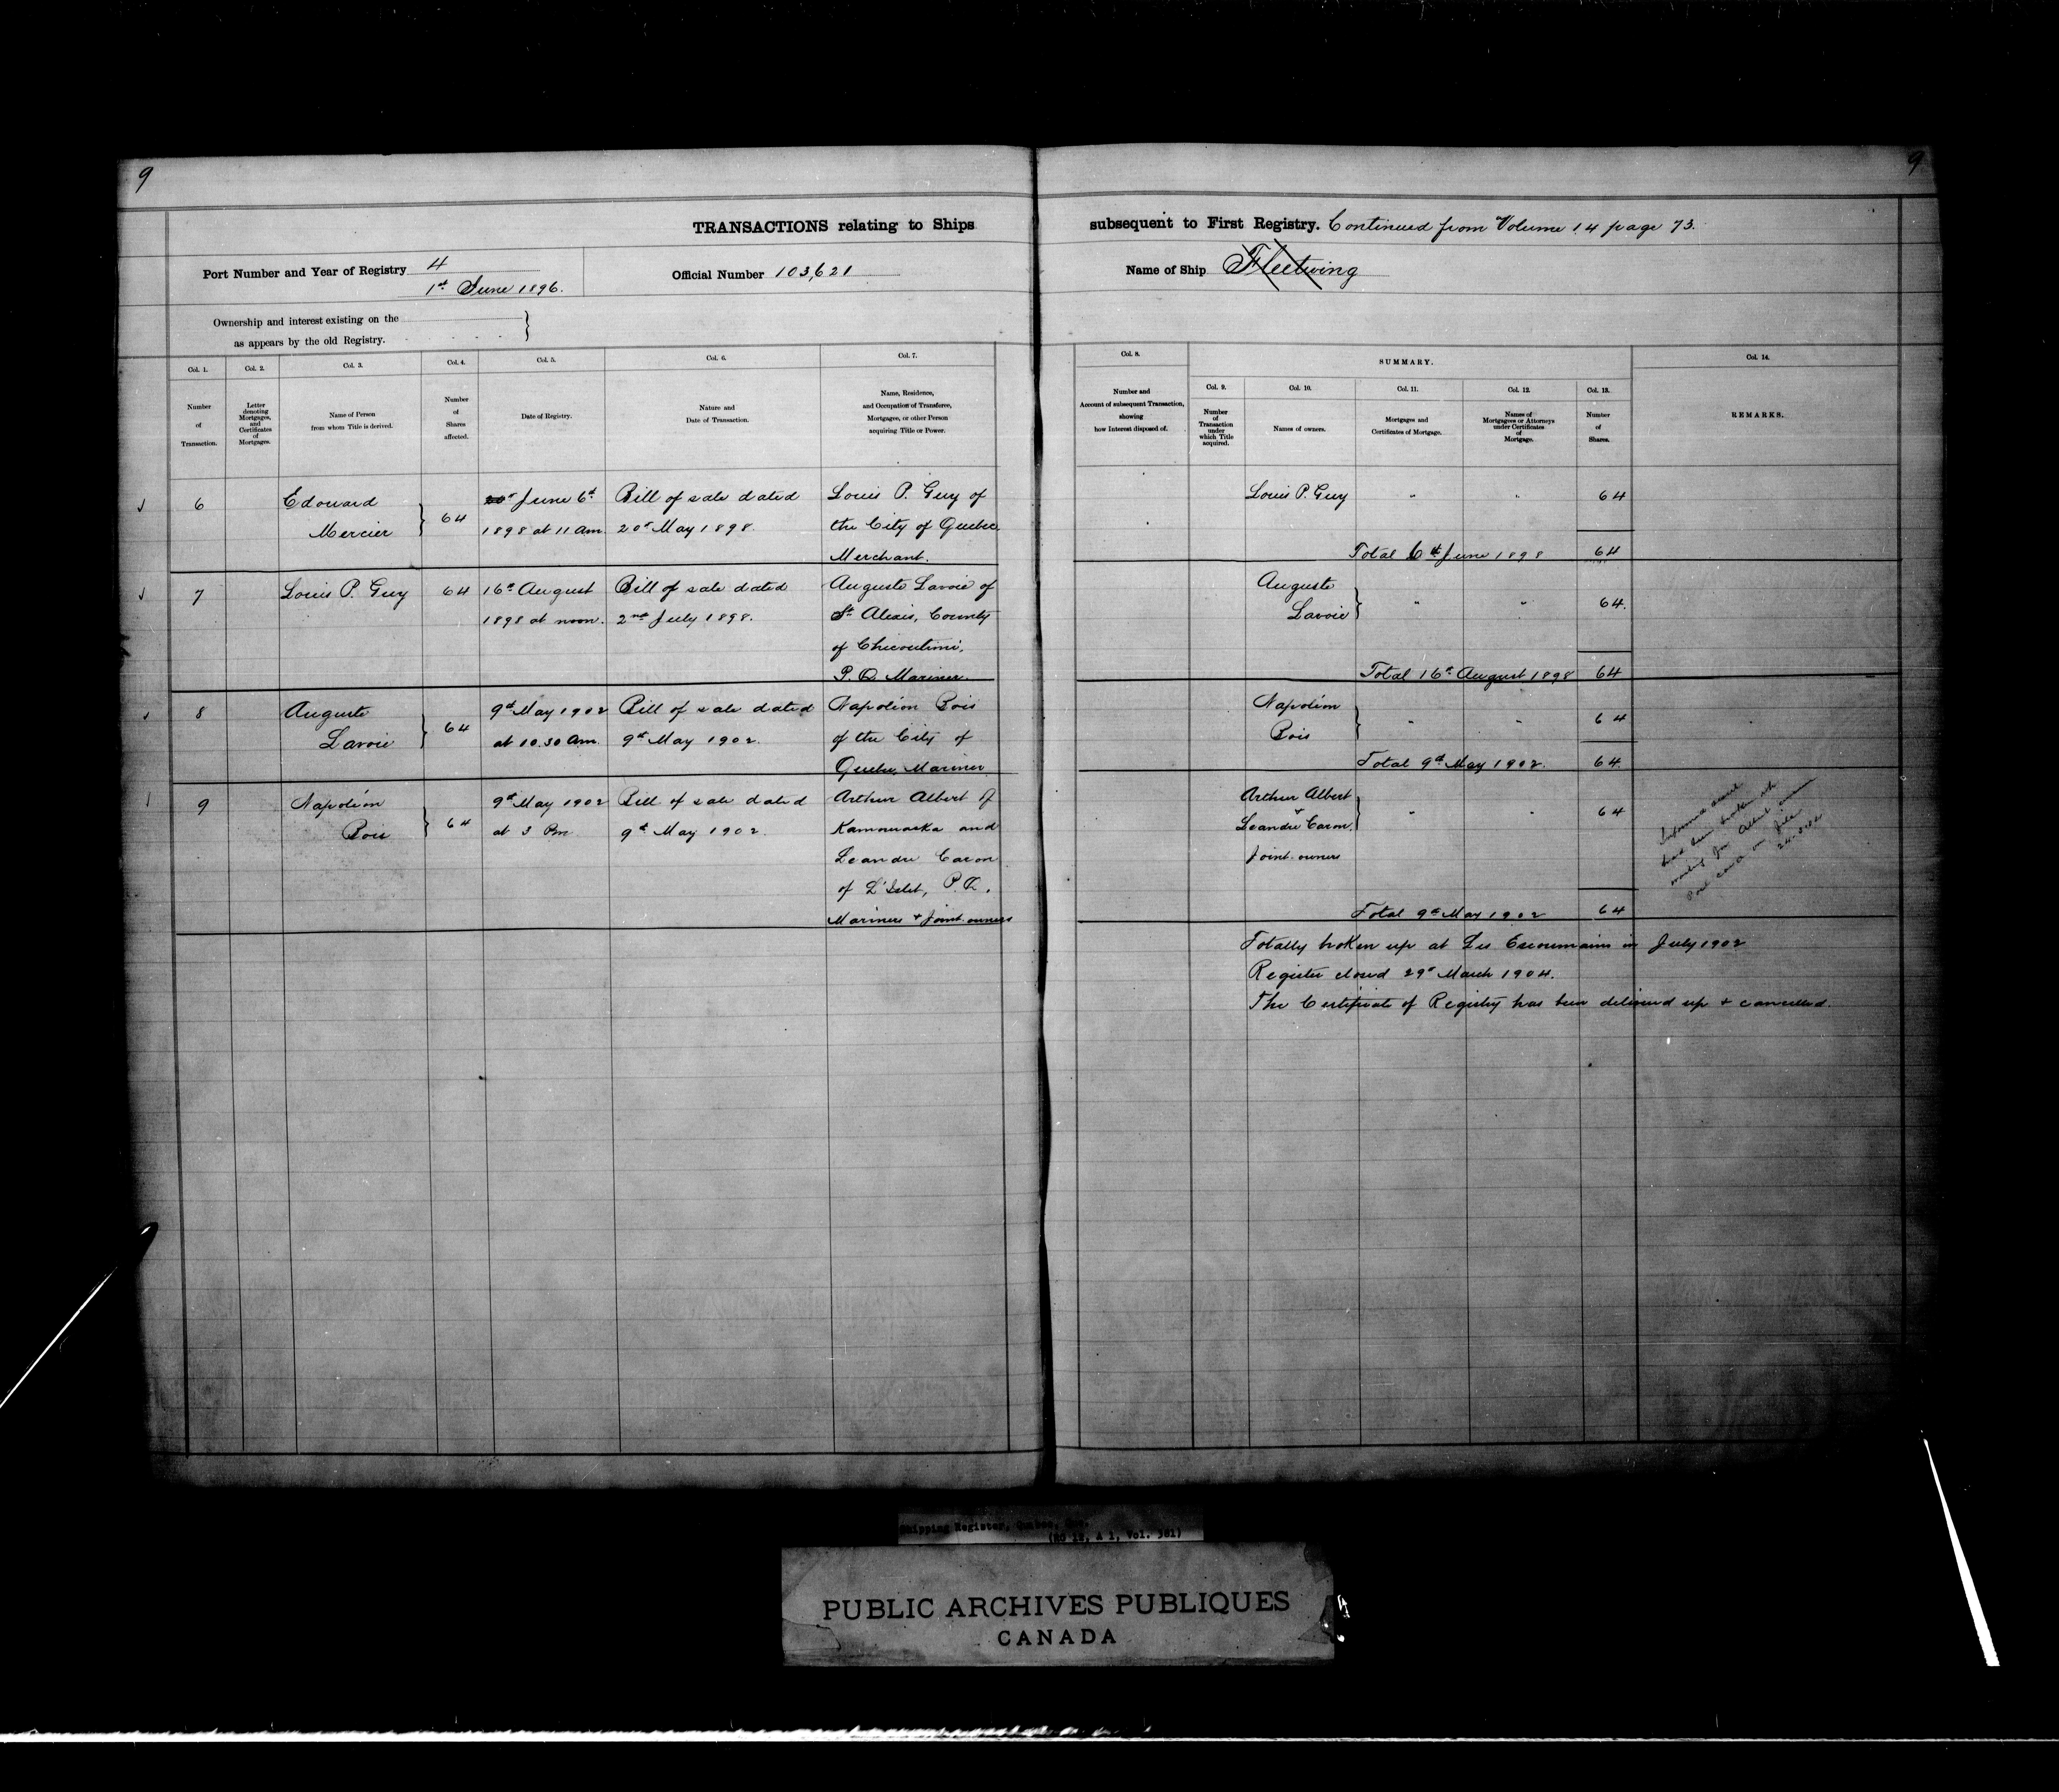 9
9
TRANSACTIONS relating to Ships subsequent to First Registry. Continued from Volume 14 page 73.
Port Number and Year of Registry 4
1st June 1896.
Official Number 103,621
Name of Ship Fleetwing
Ownership and interest existing on the
as appears by the old Registry.
Col. 1.
Number
of
Transaction.
Col. 2.
Letter
denoting
Mortgages,
and
Certificates
of
Mortgages.
Col. 3.
Name of Person
from whom Title is derived.
Col. 4.
Number
of
Shares
affected.
Col. 5.
Date of Registry.
Col. 6.
Nature and
Date of Transaction.
Col. 7.
Name, Residence,
and Occupation of Transferee,
Mortgagee, or other Person
acquiring Title or Power.
Col. 8.
Number and
Account of subsequent Transaction,
showing
how Interest disposed of.
SUMMARY.
Col. 9.
Number
of
Transaction
under
which Title
acquired.
Col. 10.
Names of owners.
Col. 11.
Mortgages and
Certificates of Mortgage.
Col. 12.
Names of
Mortgagees or Attorneys
under Certificates
of
Mortgage.
Col. 13.
Number
of
Shares.
Col. 14.
REMARKS.
6
Edouard
Mercier
64
June 6th
1898 at 11 am.
Bill of sale dated
20th May 1898.
Louis P. Guy of
the City of Quebec,
Merchant.
Louis P. Guy
" "
64
Total 6th June 1898 64
7
Louis P. Guy
64
16th August
1898 at noon.
Bill of sale dated
2nd July 1898.
Auguste Lavoie of
St. Alexis, County
of Chicoutimi,
P. Q. Mariner.
Auguste
Lavoie
" "
64.
Total 16th August 1898 64
8
Auguste
Lavoie
64
9th May 1902
at 10.30 am.
Bill of sale dated
9th May 1902.
Napoléon Bois
of the City of
Quebec, Mariner
Napoléon
Bois
" "
64
Total 9th May 1902. 64
9
Napoléon
Bois
64
9th May 1902
at 3 Pm
Bill of sale dated
9th May 1902.
Arthur Albert of
Kamouraska and
Leandre Caron
of L'Islet, P.Q.
Mariners + Joint owners
Arthur Albert
+
Leandre Caron.
Joint owners
" "
64
Total 9th May 1902 64
Totally broken up at Les Escoumains in July 1902
Register closed 29th March 1904.
The Certificate of Registry has been delivered up + cancelled.
Shipping Register, Quebec, Que.
(RG 12, A 1, Vol. 381)
PUBLIC ARCHIVES PUBLIQUES
CANADA